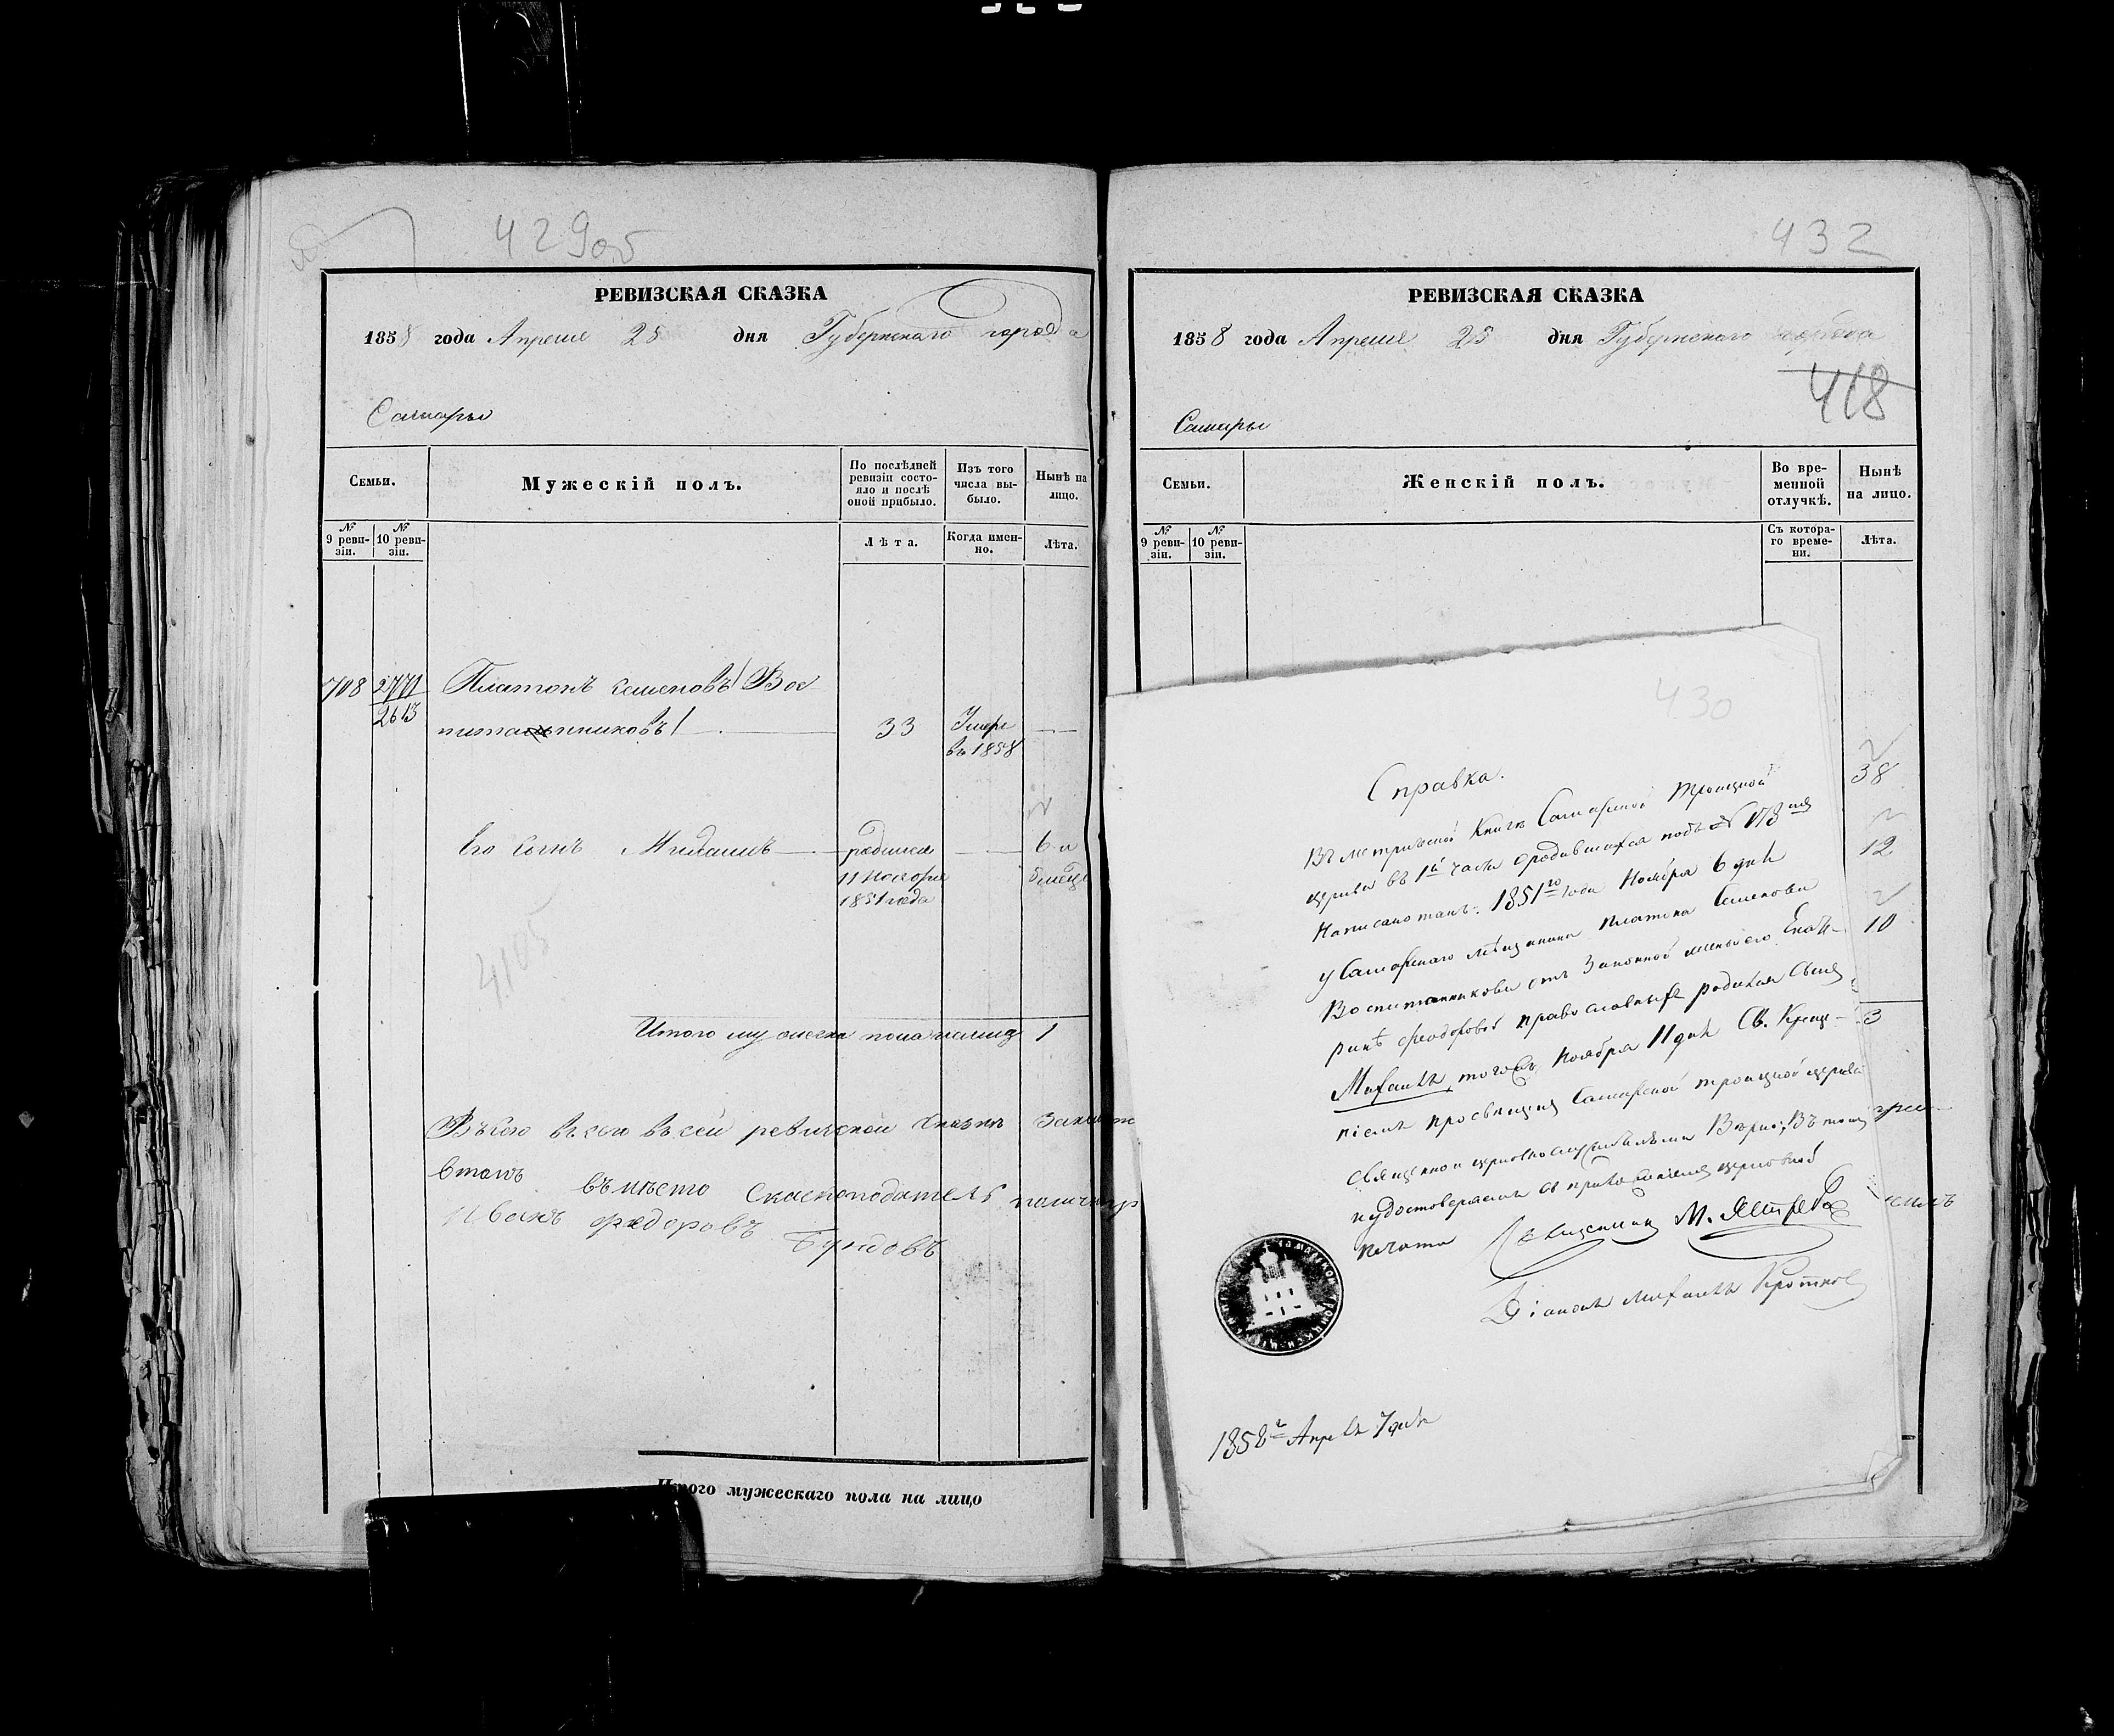 429об
РЕВИЗСКАЯ СКАЗКА
1858 года Апреля 25 дня Губернскаго города
Самары
Семьи.
Мужескій полъ.
По послѣдней ревизіи состояло и послѣ оной прибыло.
Изъ того числа выбыло.
Нынѣ на лицо.
№ 9 ревизіи.
№ 10 ревизіи.
Лѣта.
Когда именно.
Лѣта.
708 2771 Платонъ Семеновъ (Вос
2613
питанниковъ) 33 Умеръ
въ 1858
Его сынъ Михаилъ родился 6 и
11 Ноября
1851 года
4105
Итого мужеска пола налицо 1
ревизской
въ томъ вместо Сказкоподатель
Иванъ Федоровъ
Итого мужескаго пола на лицо
432
РЕВИЗСКАЯ СКАЗКА
1858 года Апреля 25 дня Губернскаго города
418
Самары
Семьи.
Женскій полъ.
Во временной отлучкѣ.
Нынѣ на лицо.
№ 9 ревизіи.
№ 10 ревизіи.
Съ котораго времени.
Лѣта.
38
12
10
3
430
Справка.
Въ метрической Книгѣ Самарской Троицкой
церкви въ 1й части о родившихся подъ №
Написано такъ: 1851го года Ноября 6 дня
у Самарскаго мѣщанина Платона Семенова
Воспитанникова отъ Законной жены его Екате-
ринѣ Феодоровой православныхъ родился сынъ
Михаилъ, тогожъ Ноября 11 дня Св. Креще-
ніемъ просвященъ Самарской Троицкой церкви
священно и церковнослужителями Вѣрно; Въ томъ
и удостоверяемъ съ приложеніемъ церковной
печати Священникъ М.
Діаконъ Михаилъ Кротков
1858г Апреля 7 дня